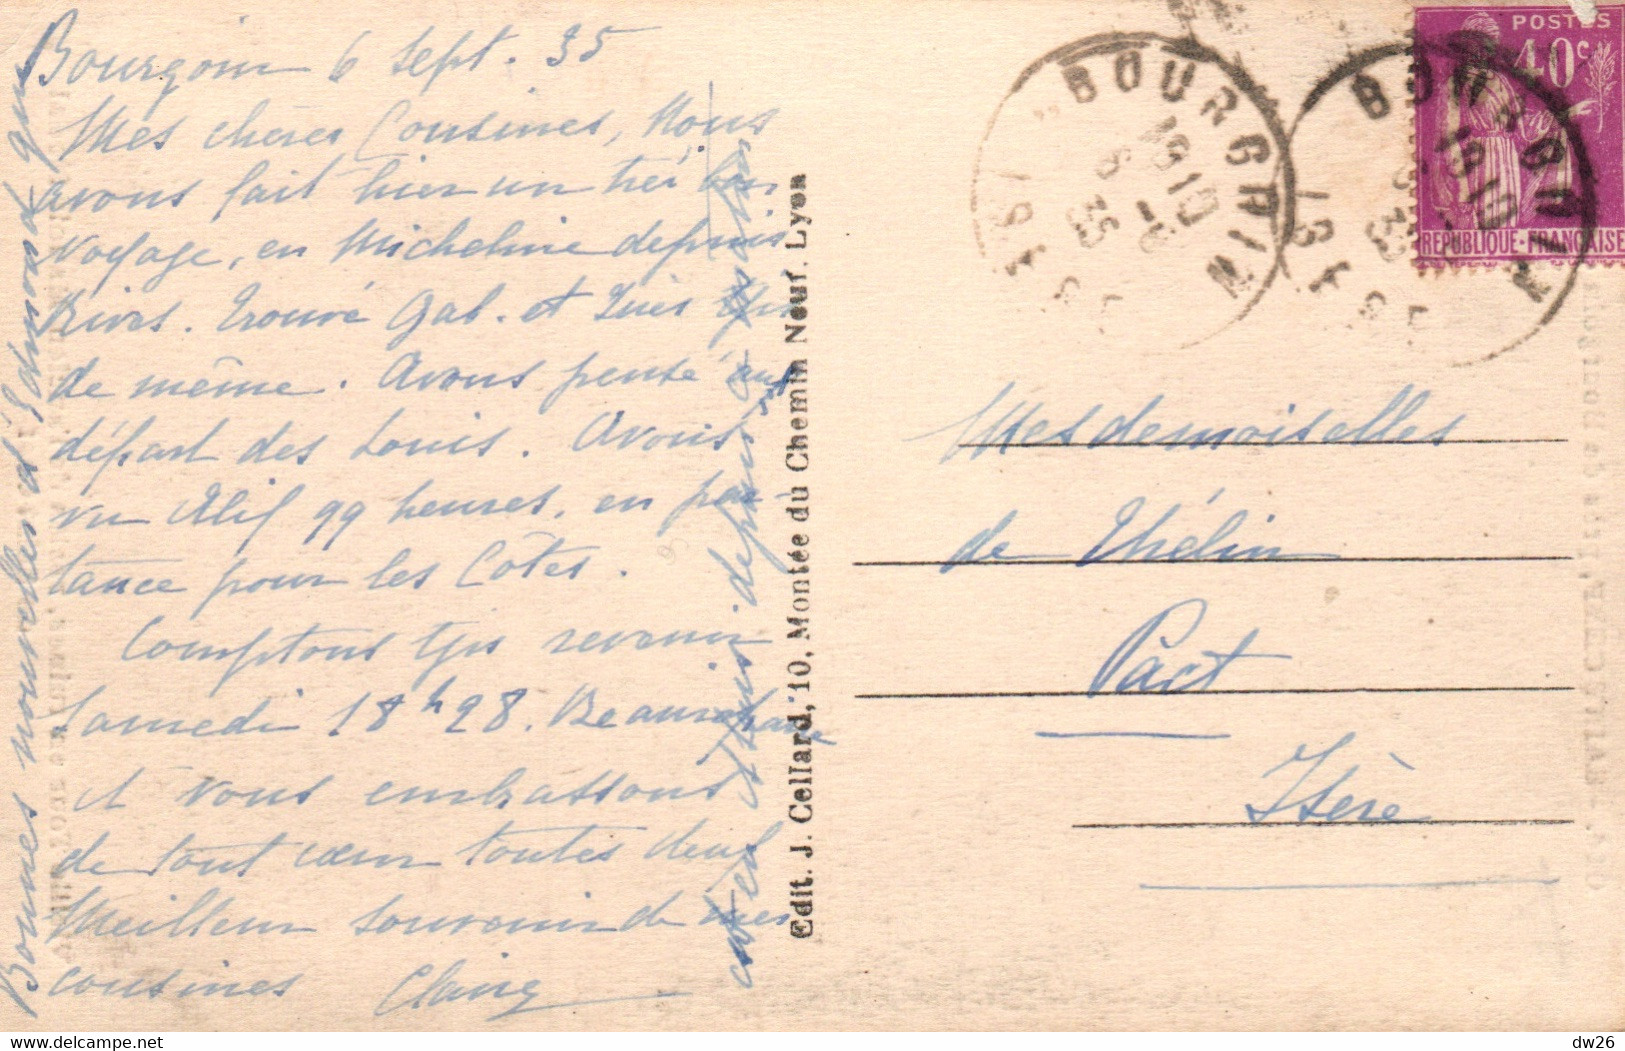 Bourgoin 6 Sept. 35
Mes chères Cousines, Nous
avons fait hier un très bon
voyage, en Micheline depuis
Rives. Trouvé Gab. et Inès tjrs
de même. Avons pensé au
départ des Louis. Avons
vu Alif 99 heures, en par-
tance pour les Côtes.
Comptons tjrs revenir
Samedi 18h28. Beaucroissant
et vous embrassons
de tout cœur toutes deux
Meilleur souvenir de mes
cousines Claire
Bonnes nouvelles d'Edmond qui
Edit. J. Cellard, 10, Montée du Chemin Neuf. Lyon
POSTES
40c
REPUBLIQUE-FRANÇAISE
BOURGOIN
1910
6 -9
35
ISERE
BOURGOIN
1910
35
ISERE
Mesdemoiselles
de Thélin
Pact
Isère
dw26